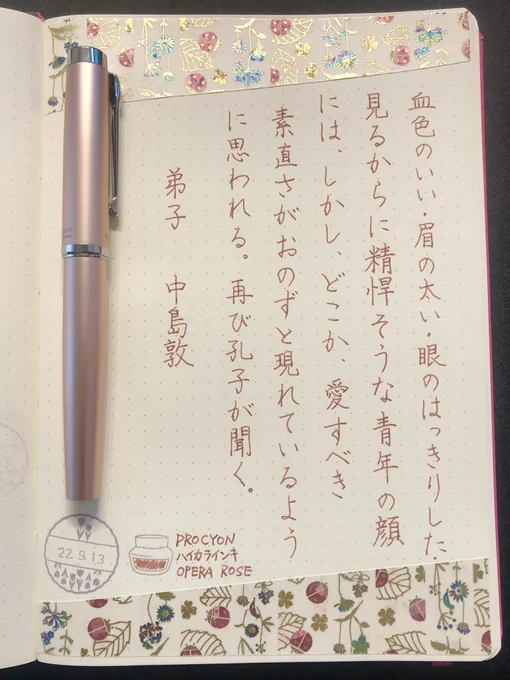 血色のいい・眉の太い・眼のはっきりした、
見るからに精悍そうな青年の顔
には、しかし、どこか、愛すべき
素直さがおのずと現れているよう
に思われる。再び孔子が聞く。
弟子 中島敦
22.9.13
PROCYON
ハイカラインキ
OPERA ROSE